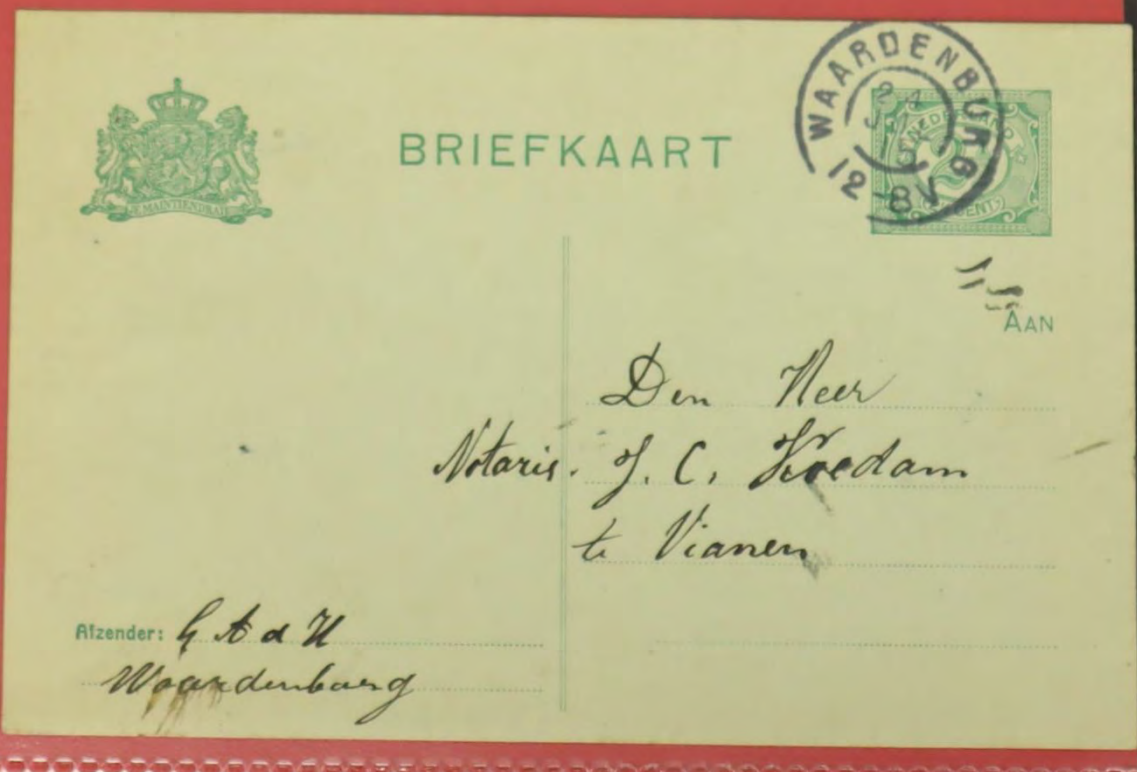 JE MAINTIENDRAI
BRIEFKAART
WAARDENBURG
12-8V
NEDERLAND
CENT
AAN
Den Heer
Notaris. J. C. Hoedam
te Vianen
Afzender: G A d H
Waardenburg